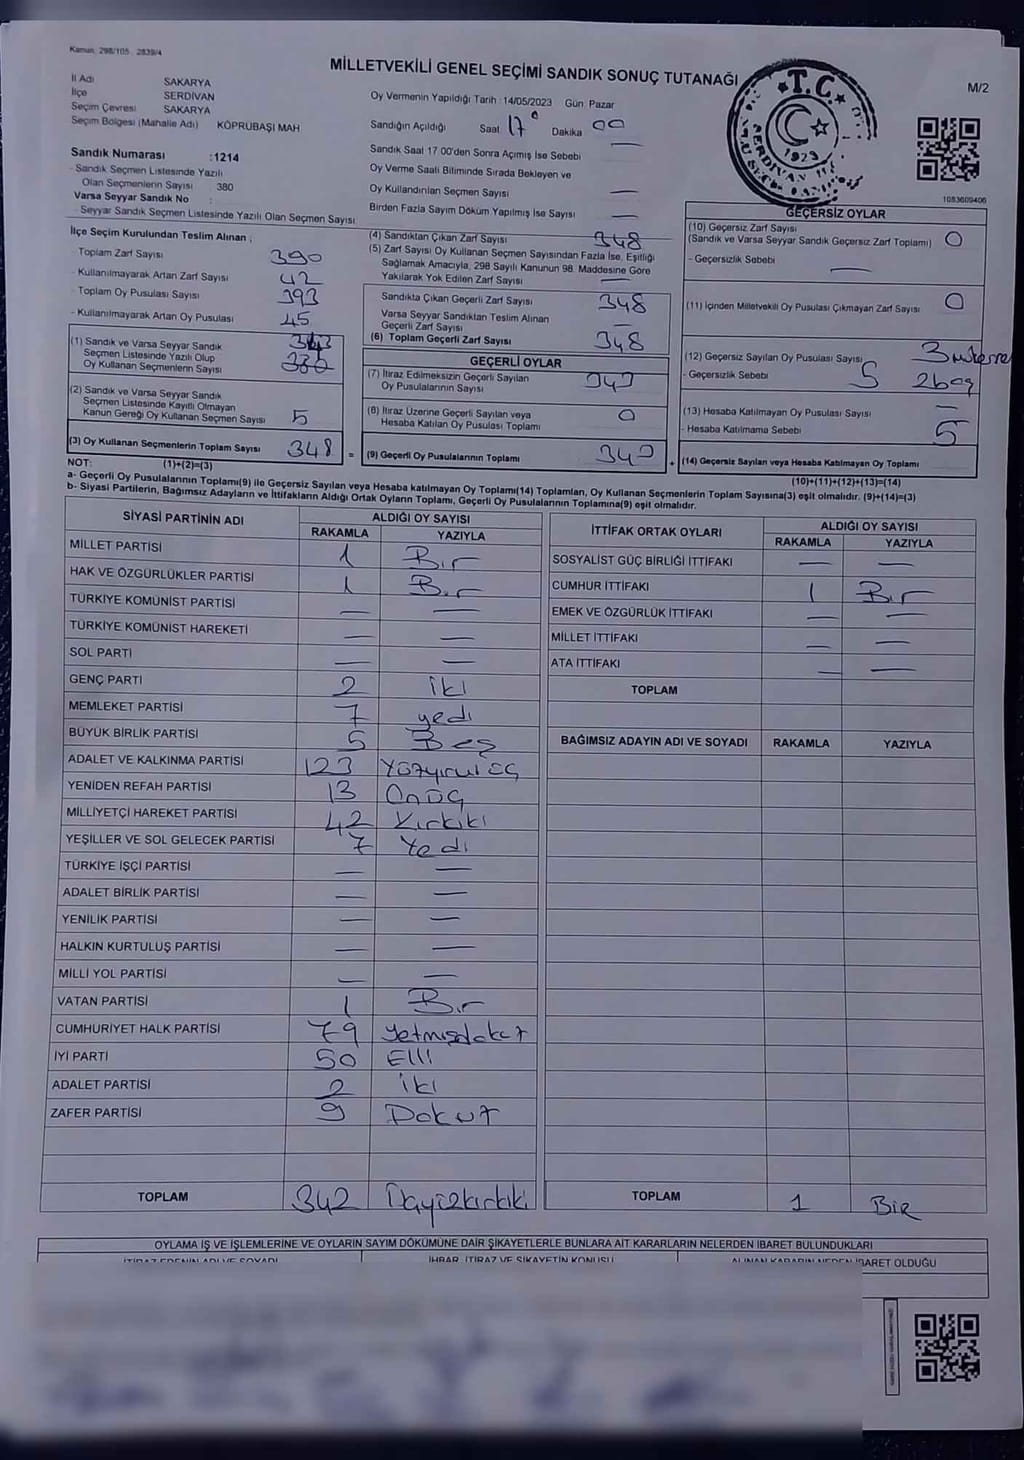 Kanun 298/105 2839/4
MİLLETVEKİLİ GENEL SEÇİMİ SANDIK SONUÇ TUTANAĞI
M/2
İl Adı SAKARYA
İlçe SERDİVAN
Seçim Çevresi SAKARYA
Seçim Bölgesi (Mahalle Adı) KÖPRÜBAŞI MAH
Sandık Numarası :1214
- Sandık Seçmen Listesinde Yazılı
Olan Seçmenlerin Sayısı 380
Varsa Seyyar Sandık No :
- Seyyar Sandık Seçmen Listesinde Yazılı Olan Seçmen Sayısı
Oy Vermenin Yapıldığı Tarih : 14/05/2023 Gün: Pazar
Sandığın Açıldığı Saat 17 Dakika 00
Sandık Saat 17:00'den Sonra Açılmış İse Sebebi —
Oy Verme Saati Bitiminde Sırada Bekleyen ve
Oy Kullandırılan Seçmen Sayısı —
Birden Fazla Sayım Döküm Yapılmış İse Sayısı —
T.C.
1923
1083609406
İlçe Seçim Kurulundan Teslim Alınan ;
- Toplam Zarf Sayısı 390
- Kullanılmayarak Artan Zarf Sayısı 42
- Toplam Oy Pusulası Sayısı 393
- Kullanılmayarak Artan Oy Pusulası 45
(1) Sandık ve Varsa Seyyar Sandık 343
Seçmen Listesinde Yazılı Olup
Oy Kullanan Seçmenlerin Sayısı 380
(2) Sandık ve Varsa Seyyar Sandık
Seçmen Listesinde Kayıtlı Olmayan
Kanun Gereği Oy Kullanan Seçmen Sayısı 5
(3) Oy Kullanan Seçmenlerin Toplam Sayısı 348 =
(4) Sandıktan Çıkan Zarf Sayısı 348
(5) Zarf Sayısı Oy Kullanan Seçmen Sayısından Fazla İse, Eşitliği
Sağlamak Amacıyla, 298 Sayılı Kanunun 98. Maddesine Göre
Yakılarak Yok Edilen Zarf Sayısı —
Sandıkta Çıkan Geçerli Zarf Sayısı 348
Varsa Seyyar Sandıktan Teslim Alınan
Geçerli Zarf Sayısı —
(6) Toplam Geçerli Zarf Sayısı 348
GEÇERLİ OYLAR
(7) İtiraz Edilmeksizin Geçerli Sayılan
Oy Pusulalarının Sayısı 343
(8) İtiraz Üzerine Geçerli Sayılan veya
Hesaba Katılan Oy Pusulası Toplamı 0
(9) Geçerli Oy Pusulalarının Toplamı 343 +
GEÇERSİZ OYLAR
(10) Geçersiz Zarf Sayısı
(Sandık ve Varsa Seyyar Sandık Geçersiz Zarf Toplamı) 0
- Geçersizlik Sebebi —
(11) İçinden Milletvekili Oy Pusulası Çıkmayan Zarf Sayısı 0
(12) Geçersiz Sayılan Oy Pusulası Sayısı 5 3 mükerre
- Geçersizlik Sebebi 2 boş
(13) Hesaba Katılmayan Oy Pusulası Sayısı —
- Hesaba Katılmama Sebebi
(14) Geçersiz Sayılan veya Hesaba Katılmayan Oy Toplamı 5
NOT: (1)+(2)=(3) (10)+(11)+(12)+(13)=(14)
a- Geçerli Oy Pusulalarının Toplamı(9) ile Geçersiz Sayılan veya Hesaba katılmayan Oy Toplamı(14) Toplamları, Oy Kullanan Seçmenlerin Toplam Sayısına(3) eşit olmalıdır. (9)+(14)=(3)
b- Siyasi Partilerin, Bağımsız Adayların ve İttifakların Aldığı Ortak Oyların Toplamı, Geçerli Oy Pusulalarının Toplamına(9) eşit olmalıdır.
SİYASİ PARTİNİN ADI ALDIĞI OY SAYISI
RAKAMLA YAZIYLA
MİLLET PARTİSİ 1 Bir
HAK VE ÖZGÜRLÜKLER PARTİSİ 1 Bir
TÜRKİYE KOMÜNİST PARTİSİ — —
TÜRKİYE KOMÜNİST HAREKETİ — —
SOL PARTİ — —
GENÇ PARTİ 2 iki
MEMLEKET PARTİSİ 7 yedi
BÜYÜK BİRLİK PARTİSİ 5 Beş
ADALET VE KALKINMA PARTİSİ 123 Yüzyirmiüç
YENİDEN REFAH PARTİSİ 13 Onüç
MİLLİYETÇİ HAREKET PARTİSİ 42 Kırkiki
YEŞİLLER VE SOL GELECEK PARTİSİ 7 Yedi
TÜRKİYE İŞÇİ PARTİSİ — —
ADALET BİRLİK PARTİSİ — —
YENİLİK PARTİSİ — —
HALKIN KURTULUŞ PARTİSİ — —
MİLLİ YOL PARTİSİ — —
VATAN PARTİSİ 1 Bir
CUMHURİYET HALK PARTİSİ 79 yetmişdokuz
İYİ PARTİ 50 Elli
ADALET PARTİSİ 2 iki
ZAFER PARTİSİ 9 Dokuz
TOPLAM 342 Üçyüzkırkiki
İTTİFAK ORTAK OYLARI ALDIĞI OY SAYISI
RAKAMLA YAZIYLA
SOSYALİST GÜÇ BİRLİĞİ İTTİFAKI — —
CUMHUR İTTİFAKI 1 Bir
EMEK VE ÖZGÜRLÜK İTTİFAKI — —
MİLLET İTTİFAKI — —
ATA İTTİFAKI — —
TOPLAM
BAĞIMSIZ ADAYIN ADI VE SOYADI RAKAMLA YAZIYLA
TOPLAM 1 BİR
OYLAMA İŞ VE İŞLEMLERİNE VE OYLARIN SAYIM DÖKÜMÜNE DAİR ŞİKAYETLERLE BUNLARA AİT KARARLARIN NELERDEN İBARET BULUNDUKLARI
İTİRAZ EDENİN ADI VE SOYADI İHBAR, İTİRAZ VE ŞİKAYETİN KONUSU ALINAN KARARIN NEDEN İBARET OLDUĞU